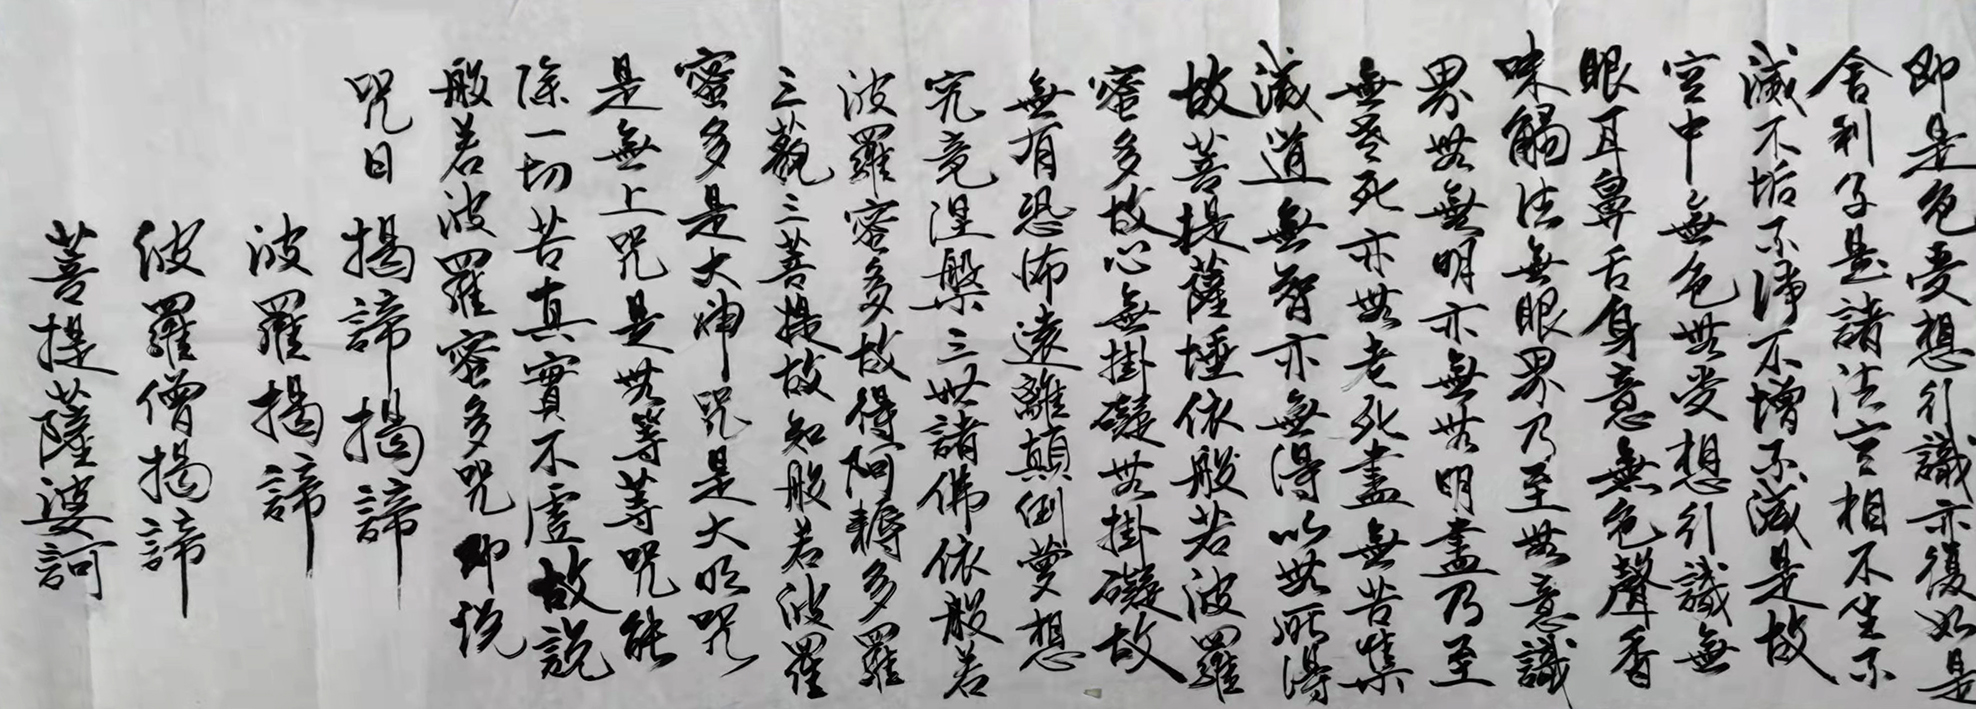 即是色受想行識亦復如是
舍利子是諸法空相不生不
滅不垢不淨不增不減是故
空中無色無受想行識無
眼耳鼻舌身意無色聲香
味觸法無眼界乃至無意識
界無無明亦無無明盡乃至
無老死亦無老死盡無苦集
滅道無智亦無得以無所得
故菩提薩埵依般若波羅
蜜多故心無掛礙無掛礙故
無有恐怖遠離顛倒夢想
究竟涅槃三世諸佛依般若
波羅蜜多故得阿耨多羅
三藐三菩提故知般若波羅
蜜多是大神咒是大明咒
是無上咒是無等等咒能
除一切苦真實不虛故說
般若波羅蜜多咒即說
咒曰揭諦揭諦
波羅揭諦
波羅僧揭諦
菩提薩婆訶